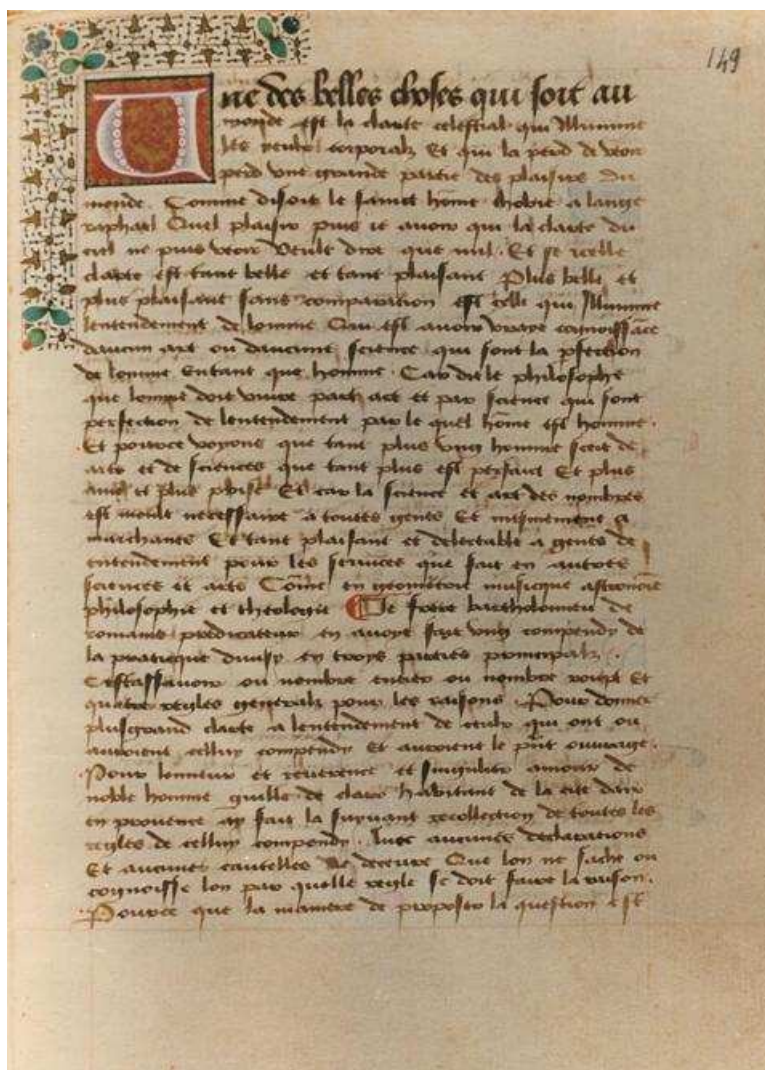 149
Une des belles choses qui soit au
monde est la clarte celestial qui Illumine
les yeulx corporalz Et qui la perd de veoir
perd une grande partie des plaisirs du
monde. Comme disoit le sainct hōme thobie a lange
raphael Quel plaisir puis ie avoir qui la clarte du
ciel ne puis veoir Veult dire que nul. Et se icelle
clarte est tant belle et tant plaisant Plus belle et
plus plaisant sans comparacion est celle qui Illumine
lentendement de lomme Qui est avoir vraye cognoissāce
daucun art ou daucune science qui sont la pfection
de lomme Entant que homme. Car dit le philosophe
que lomme doit vivre par art et par science qui sont
perfection de lentendement par le quel hōme est homme.
Et pource voyons que tant plus ung homme scet de
arts et de sciences que tant plus est perfaict Et plus
ame et plus prise Et car la science et art des nombres
est moult necessaire a toutes gents Et mesmement a
marchans Et tant plaisant et delectable a gents de
entendement pour les services que fait en autres
sciences et arts Cōme en geometrie musicque astronōie
philosophie et theologie Ce frere bartholomieu de
romans predicateur en avoye fait ung compendy de
la praticque divisy en troys parties principalz.
Cestassavoir ou nombre entier ou nombre roupt Et
quatre reigles generalz pour les raisons. Pour donner
plusgrand clarte a lentendement de ceulx qui ont ou
auroient celluy compendy Et auroient le pñt ouvrage.
Pour lonneur et reverence et singulier amour de
noble homme guille de habitant de la cite daix
en provence ay fait la suyvant recollection de toutes les
reigles de celluy compendy. Avec aucunes declaracions
Et aucunes cautelles de decevre Que lon ne sache ou
cognoisse lon par quelle reigle se doit faire la raison.
Pource que la maniere de proposer la question est